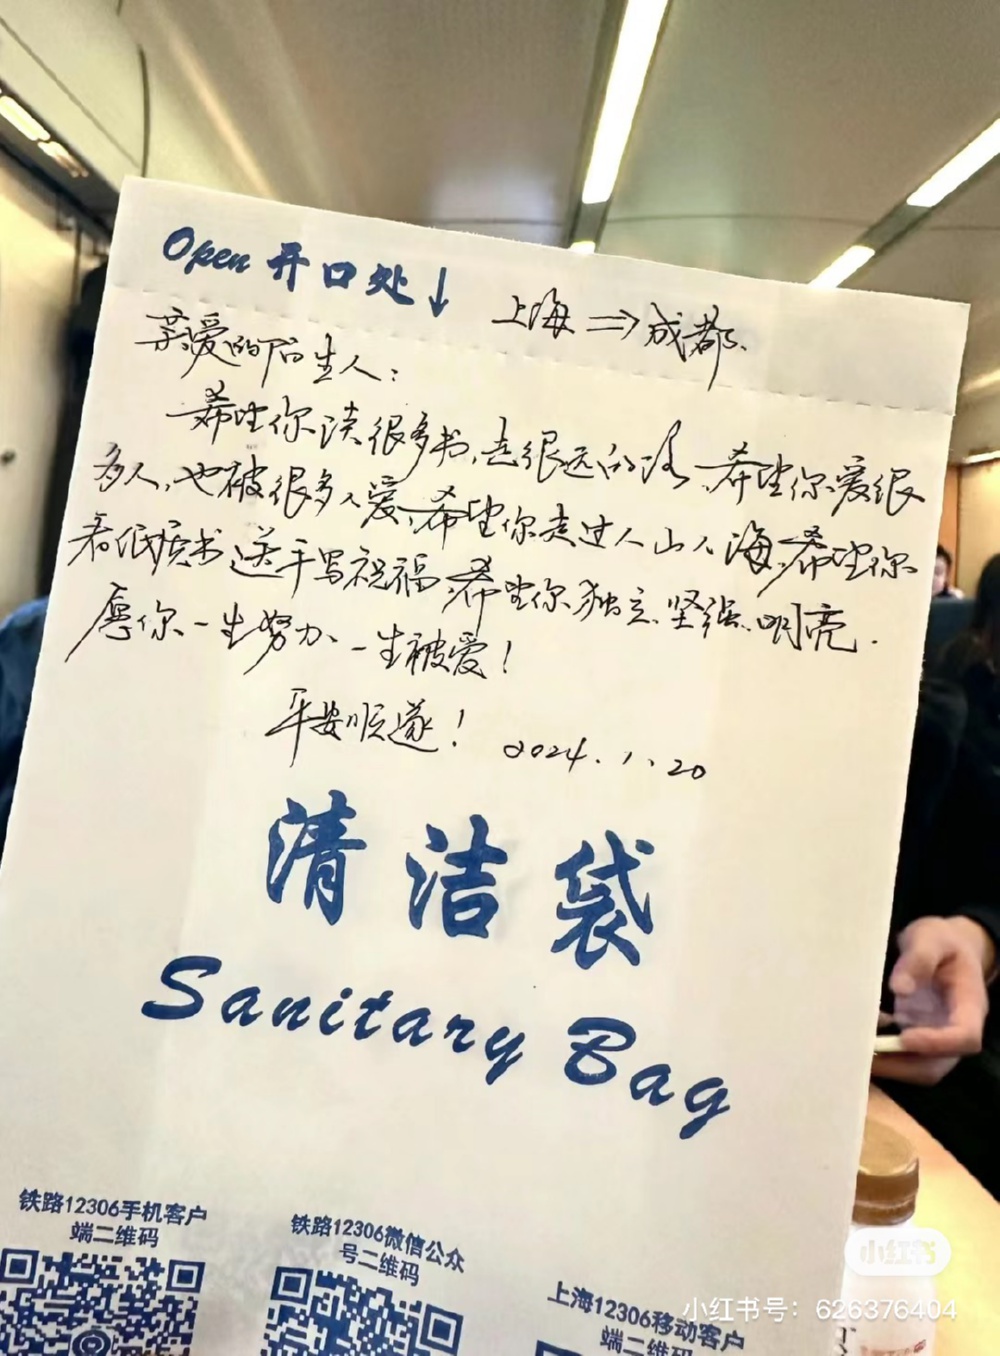 Open 开口处↓
上海⇒成都.
亲爱的陌生人:
希望你读很多书,走很远的路,希望你爱很
多人,也被很多人爱,希望你走过人山人海,希望你
看纸质书送手写祝福,希望你独立.坚强.明亮.
愿你一生努力、一生被爱!
平安顺遂!
2024.1.20
清洁袋
Sanitary Bag
铁路12306手机客户
端二维码
铁路12306微信公众
号二维码
上海12306移动客户
端二维码
小红书
小红书号：626376404